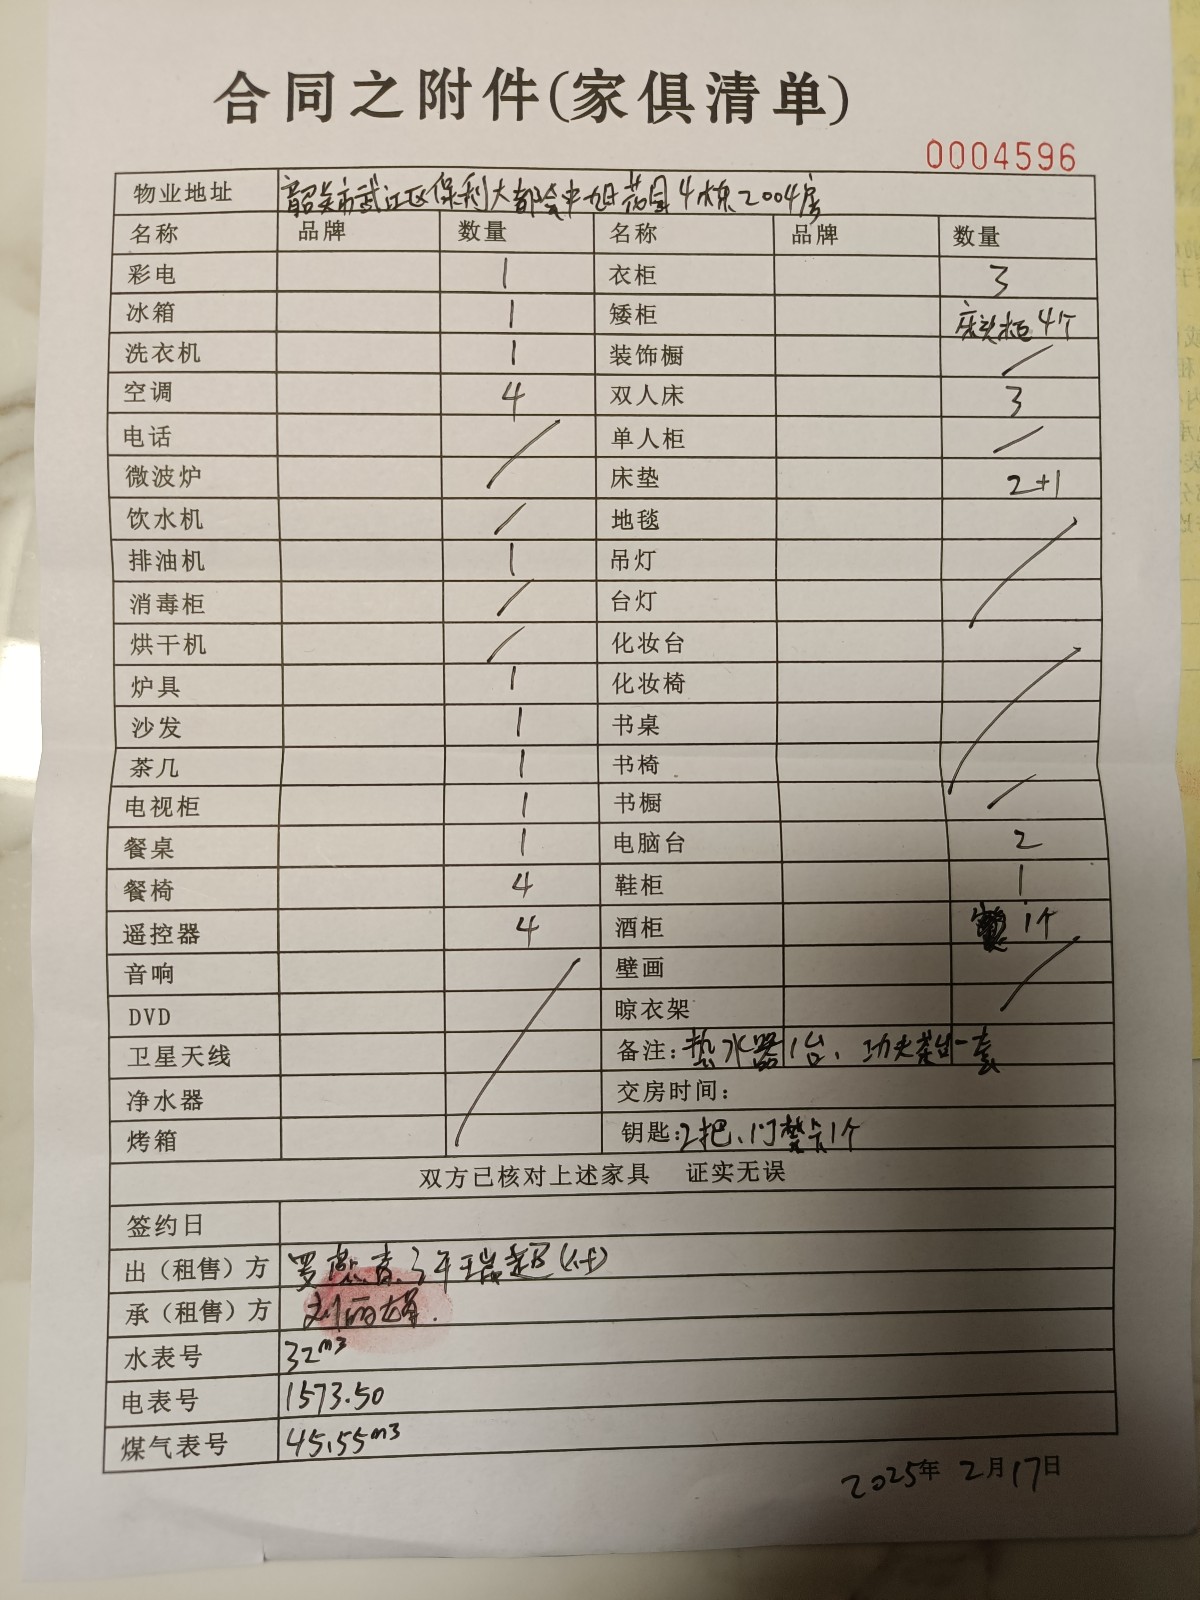 合同之附件(家俱清单)
0004596
物业地址 韶关市武江区保利大都会中旭花园4栋2004房
名称 品牌 数量 名称 品牌 数量
彩电 1 衣柜 3
冰箱 1 矮柜 床头柜4个
洗衣机 1 装饰橱 /
空调 4 双人床 3
电话 / 单人柜 /
微波炉 床垫 2+1
饮水机 / 地毯 /
排油机 1 吊灯
消毒柜 / 台灯
烘干机 / 化妆台 /
炉具 1 化妆椅
沙发 1 书桌
茶几 1 书椅
电视柜 1 书橱 /
餐桌 1 电脑台 2
餐椅 4 鞋柜 1
遥控器 4 酒柜 1个
音响 / 壁画 /
DVD 晾衣架
卫星天线 备注:热水器1台、功夫茶台一套
净水器 交房时间:
烤箱 钥匙:2把、门禁卡1个
双方已核对上述家具 证实无误
签约日
出（租售）方
承（租售）方
水表号 32m3
电表号 1573.50
煤气表号 45.55m3
2025年 2月17日